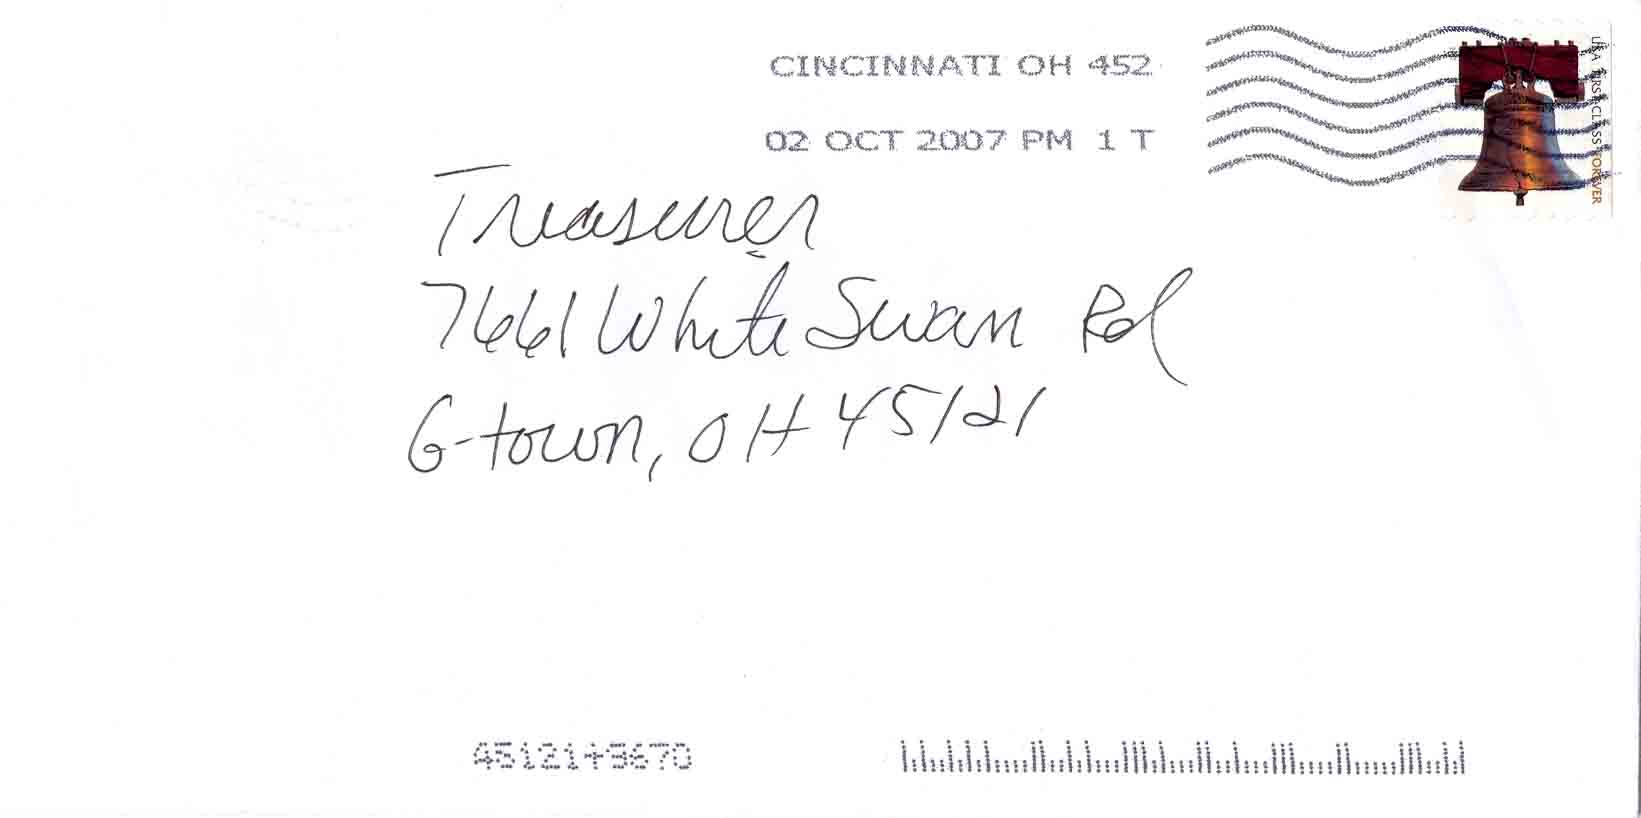 CINCINNATI OH 452
02 OCT 2007 PM 1 T
USA FIRST-CLASS FOREVER
Treasurer
7661 White Swan Rd
G-town, OH 45121
45121+9670